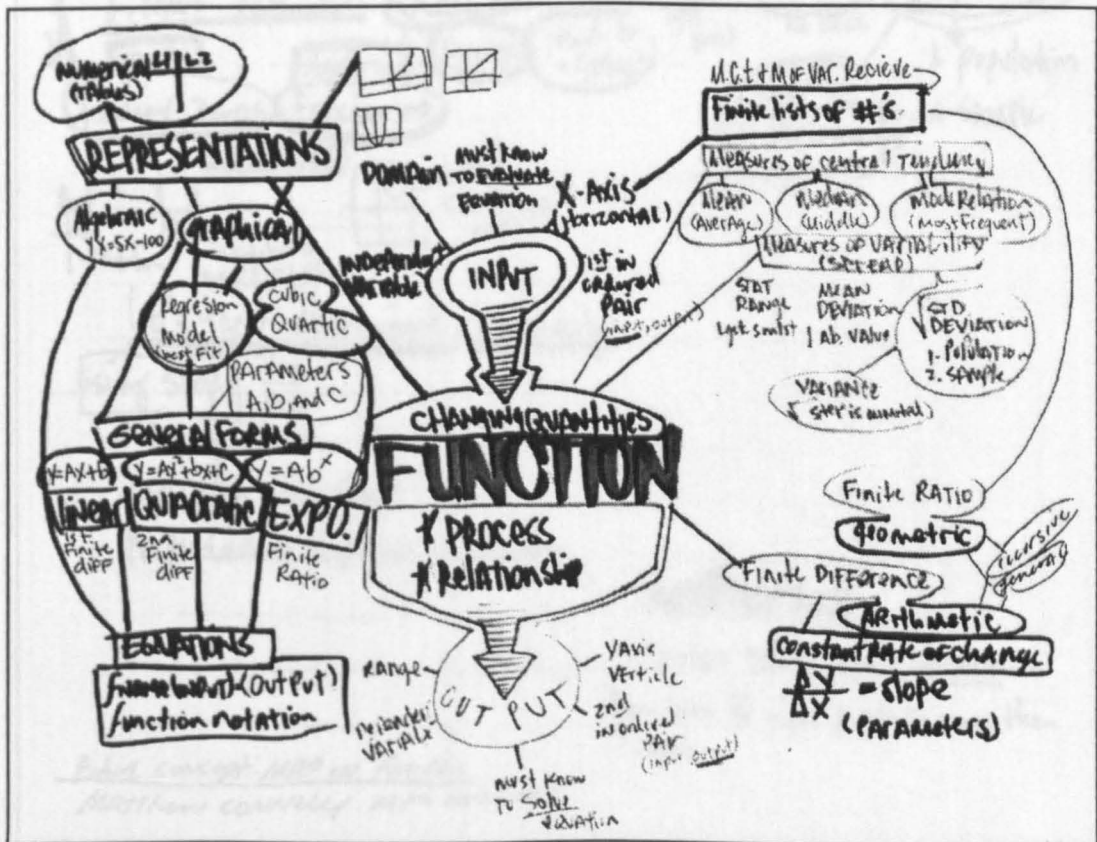 Numerical L1 L2
(TABLES)
REPRESENTATIONS
Algebraic
Y=5X-100
graphical
Regresion
Model
best Fit
CUBIC
QUARTIC
PARAMETERS
A, b, and C
General Forms
Y=AX+b
Y=AX²+bX+C
Y=Ab^x
linear
QUADRATIC
EXPO.
1st
Finite
diff
2nd
Finite
diff
Finite
Ratio
EQUATIONS
(OUTPUT)
function notation
DOMAIN
MUST KNOW
TO EVALUATE
EQUATION
X-Axis
(horizontal)
INDEPENDENT
VARIABLE
INPUT
1st in
ordered
PAIR
(input, output)
CHANGING QUANTITIES
FUNCTION
* PROCESS
* Relationship
OUTPUT
RANGE
VARIABLE
Y AXIS
VERTICLE
2nd
in ordered
PAIR
(input, output)
must know
TO Solve
equation
M.C.T & M OF VAR. Recieve
Finite lists of #'s
Measures of central Tendency
Mean
(Average)
Median
(Middle)
Mode
(Most Frequent)
Measures of VARIABILITY
STAT
RANGE
MEAN
DEVIATION
Ab. VALUE
STD
DEVIATION
1. POPULATION
2. SAMPLE
VARIANCE
Finite RATIO
geometric
recursive
general
Finite DIFFERENCE
ARithmetic
constant rate of change
ΔY
ΔX
= slope
(PARAMETERS)